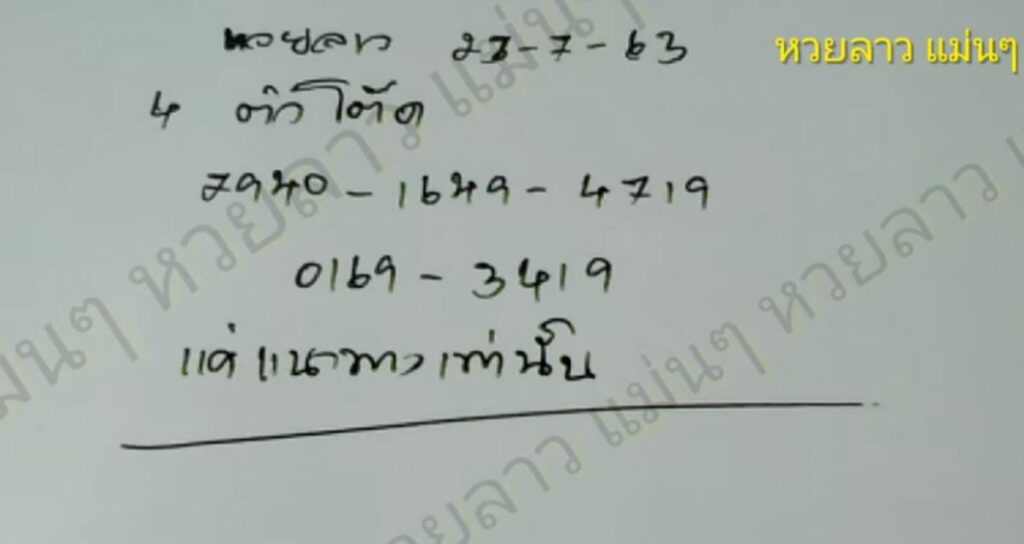 หวยลาว 23-7-63
หวยลาว แม่นๆ
4 ตัวโต๊ด
7940 - 1649 - 4719
0169 - 3419
แค่แนวทางเท่านั้น
หวยลาว แม่นๆ
หวยลาว แม่นๆ